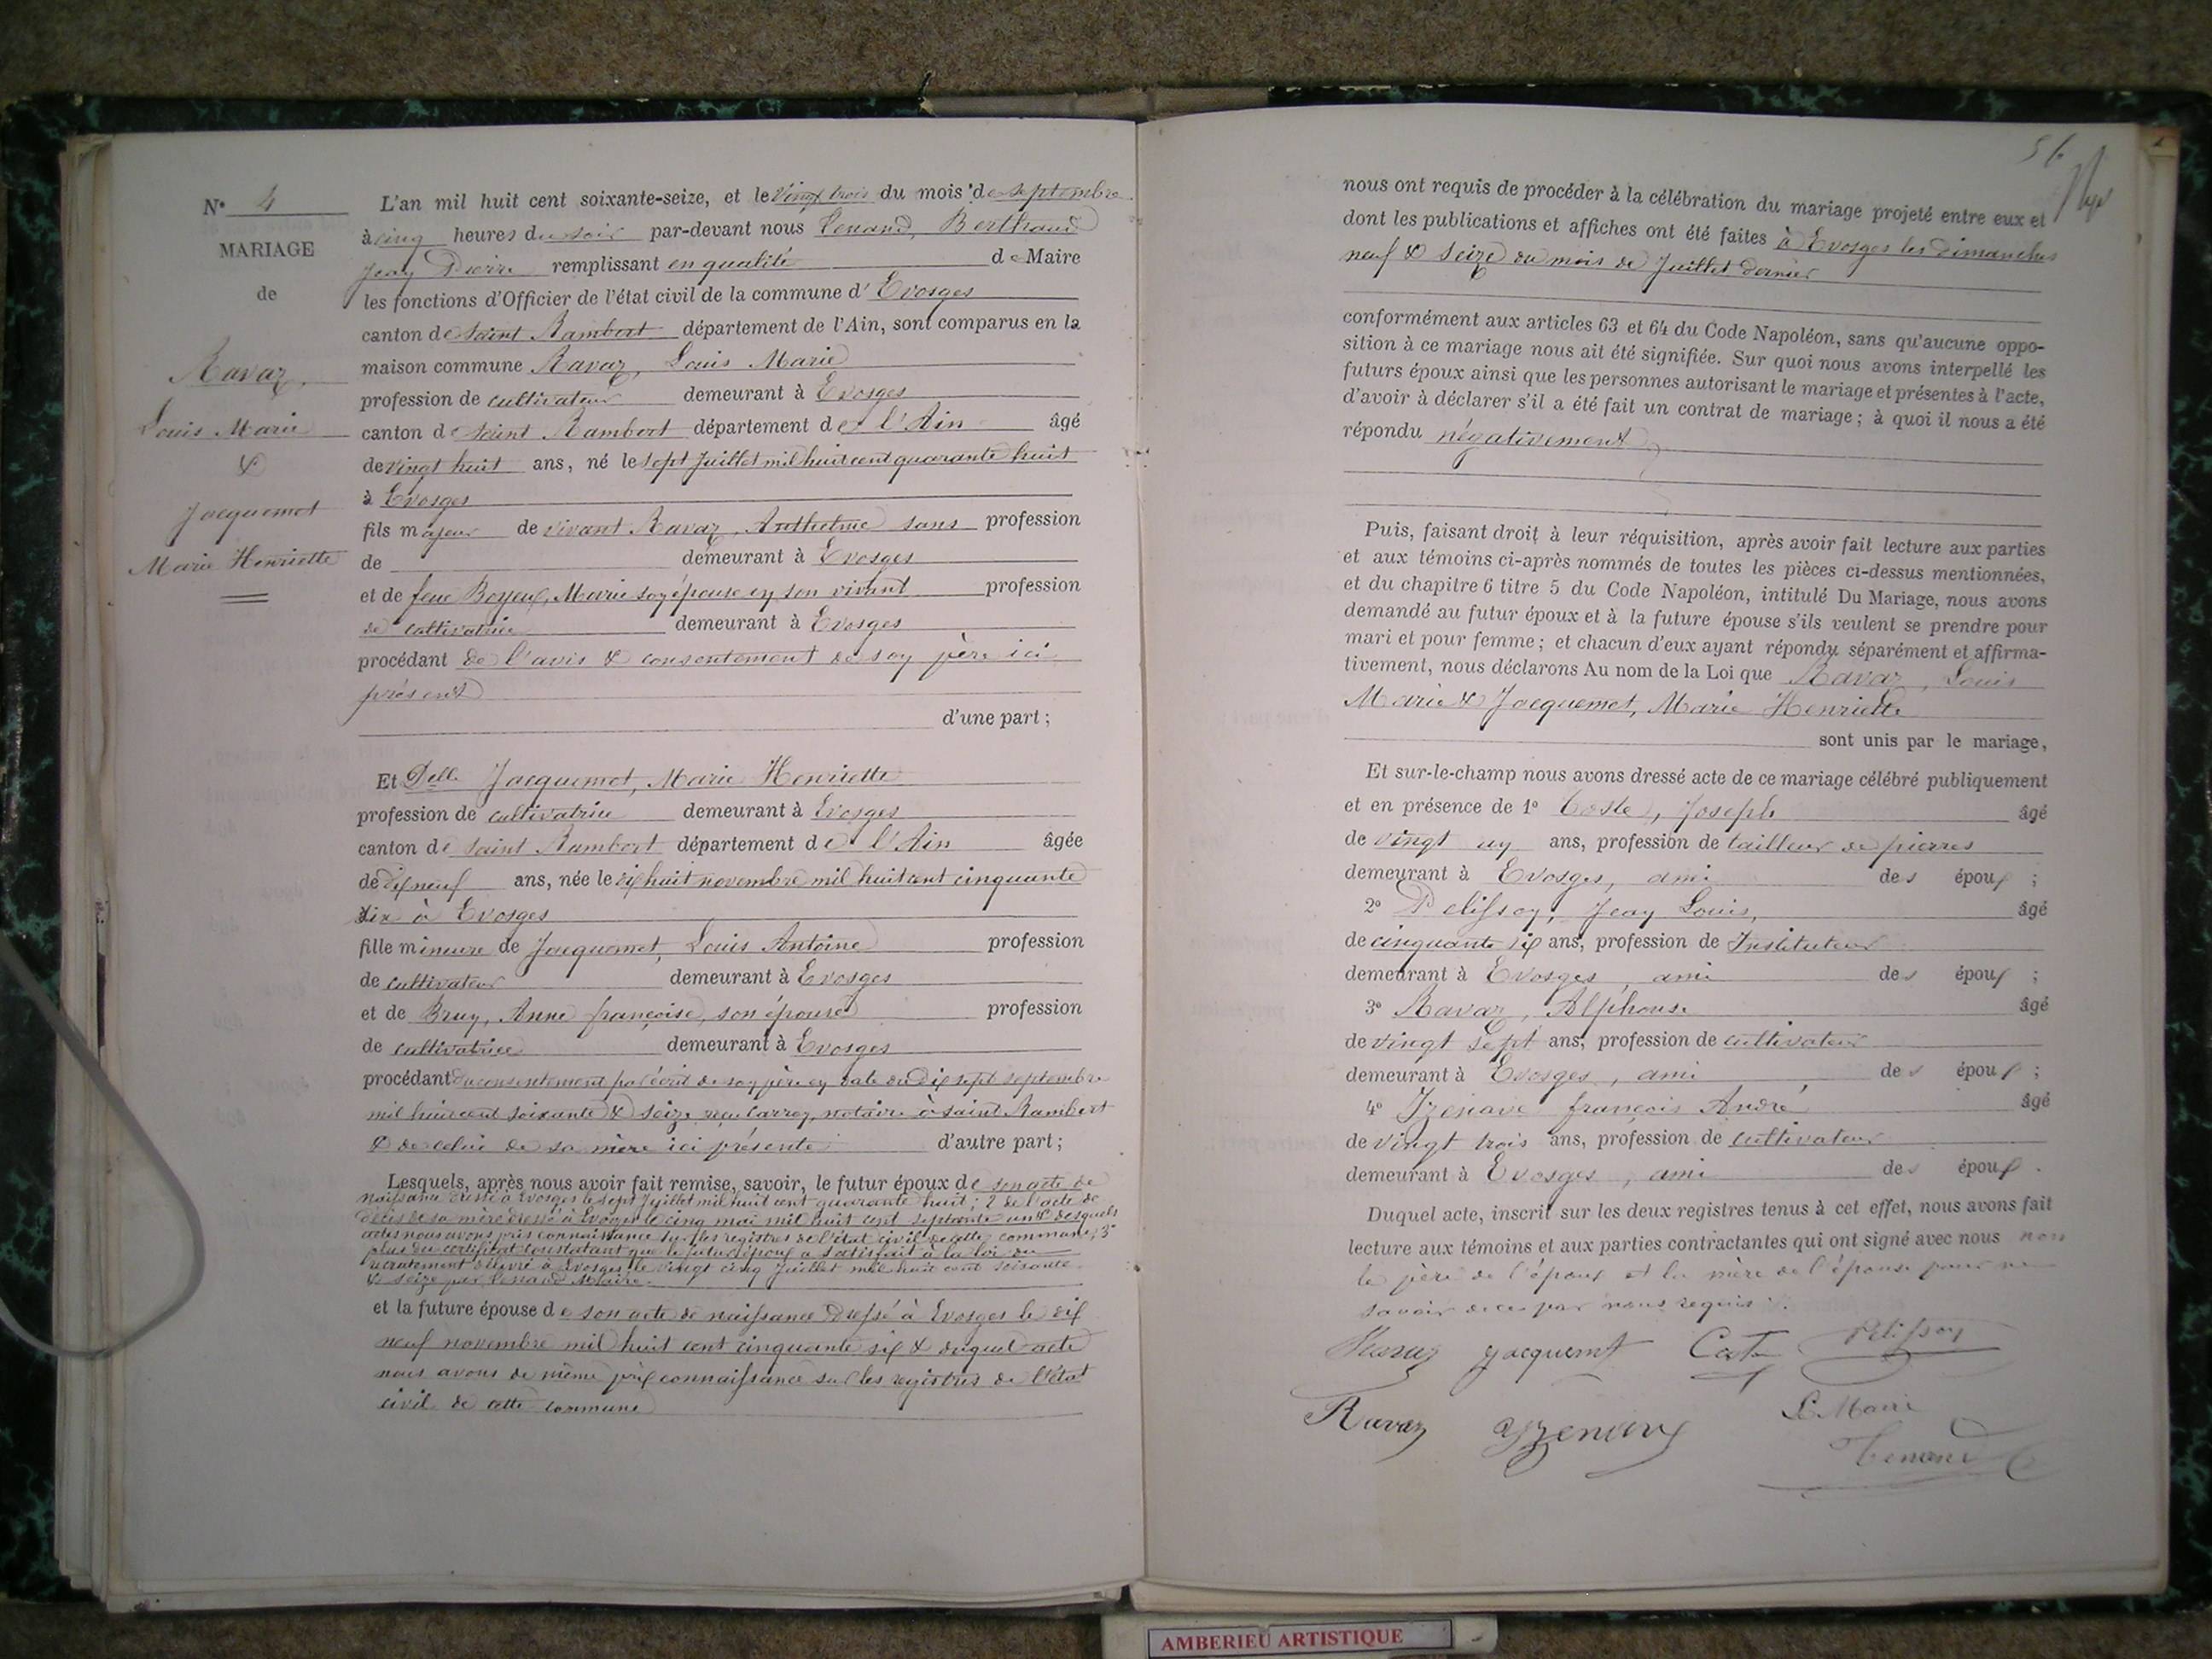 N° 4
MARIAGE
de
Ravaz,
Louis Marie
&
Jacquemet
Marie Henriette
L'an mil huit cent soixante-seize, et le Vingt trois du mois de septembre
à cinq heures du soir par-devant nous Tenand, Berthaud
Jean Pierre remplissant en qualité de Maire
les fonctions d'Officier de l'état civil de la commune d' Evosges
canton de Saint Rambert département de l'Ain, sont comparus en la
maison commune Ravaz, Louis Marie
profession de cultivateur demeurant à Evosges
canton de Saint Rambert département de l'Ain âgé
de vingt huit ans, né le sept Juillet mil huit cent quarante huit
à Evosges
fils majeur de vivant Ravaz, Anthelme sans profession
de demeurant à Evosges
et de feue Marie son épouse en son vivant profession
de cultivatrice demeurant à Evosges
procédant de l'avis & consentement de son père ici
présent
d'une part ;
Et Delle Jacquemet, Marie Henriette
profession de cultivatrice demeurant à Evosges
canton de Saint Rambert département de l'Ain âgée
de dix neuf ans, née le dix huit novembre mil huit cent cinquante
six à Evosges
fille mineure de Jacquemet, Louis Antoine profession
de cultivateur demeurant à Evosges
et de Bruy, Anne françoise, son épouse profession
de cultivatrice demeurant à Evosges
procédant du consentement par écrit de son père en date du dix sept septembre
mil huit cent soixante & seize reçu Carroz, notaire à Saint Rambert
& de celui de sa mère ici présente d'autre part ;
Lesquels, après nous avoir fait remise, savoir, le futur époux de son acte de
naissance dressé à Evosges le sept Juillet mil huit cent quarante huit ; 2 de l'acte de
décès de sa mère dressé à Evosges le cinq mai mil huit cent septante un & desquels
actes nous avons pris connaissance sur les registres de l'état civil de cette commune, 3°
plus du certificat constatant que le futur époux a satisfait à la loi du
recrutement délivré à Evosges le vingt cinq Juillet mil huit cent soixante
& seize par Tenand Maire.
et la future épouse de son acte de naissance dressé à Evosges le dix
neuf novembre mil huit cent cinquante six & duquel acte
nous avons de même pris connaissance sur les registres de l'état
civil de cette commune
56
nous ont requis de procéder à la célébration du mariage projeté entre eux et
dont les publications et affiches ont été faites à Evosges les dimanches
neuf & seize du mois de Juillet dernier
conformément aux articles 63 et 64 du Code Napoléon, sans qu'aucune oppo-
sition à ce mariage nous ait été signifiée. Sur quoi nous avons interpellé les
futurs époux ainsi que les personnes autorisant le mariage et présentes à l'acte,
d'avoir à déclarer s'il a été fait un contrat de mariage ; à quoi il nous a été
répondu négativement
Puis, faisant droit à leur réquisition, après avoir fait lecture aux parties
et aux témoins ci-après nommés de toutes les pièces ci-dessus mentionnées,
et du chapitre 6 titre 5 du Code Napoléon, intitulé Du Mariage, nous avons
demandé au futur époux et à la future épouse s'ils veulent se prendre pour
mari et pour femme ; et chacun d'eux ayant répondu séparément et affirma-
tivement, nous déclarons Au nom de la Loi que Ravaz, Louis
Marie & Jacquemet, Marie Henriette
sont unis par le mariage,
Et sur-le-champ nous avons dressé acte de ce mariage célébré publiquement
et en présence de 1° Coste, Joseph âgé
de vingt un ans, profession de tailleur de pierres
demeurant à Evosges, ami des époux ;
2° Pelisson, Jean Louis, âgé
de cinquante six ans, profession de Instituteur
demeurant à Evosges, ami des époux ;
3° Ravaz, Alphonse âgé
de vingt sept ans, profession de cultivateur
demeurant à Evosges, ami des époux ;
4° Yzenave françois André âgé
de vingt trois ans, profession de cultivateur
demeurant à Evosges, ami des époux.
Duquel acte, inscrit sur les deux registres tenus à cet effet, nous avons fait
lecture aux témoins et aux parties contractantes qui ont signé avec nous non
le père de l'époux et la mère de l'épouse pour ne
savoir de ce par nous requis.
Ravaz Jacquemet Coste Pelisson
Ravaz Yzenave Le Maire
Tenand
AMBERIEU ARTISTIQUE